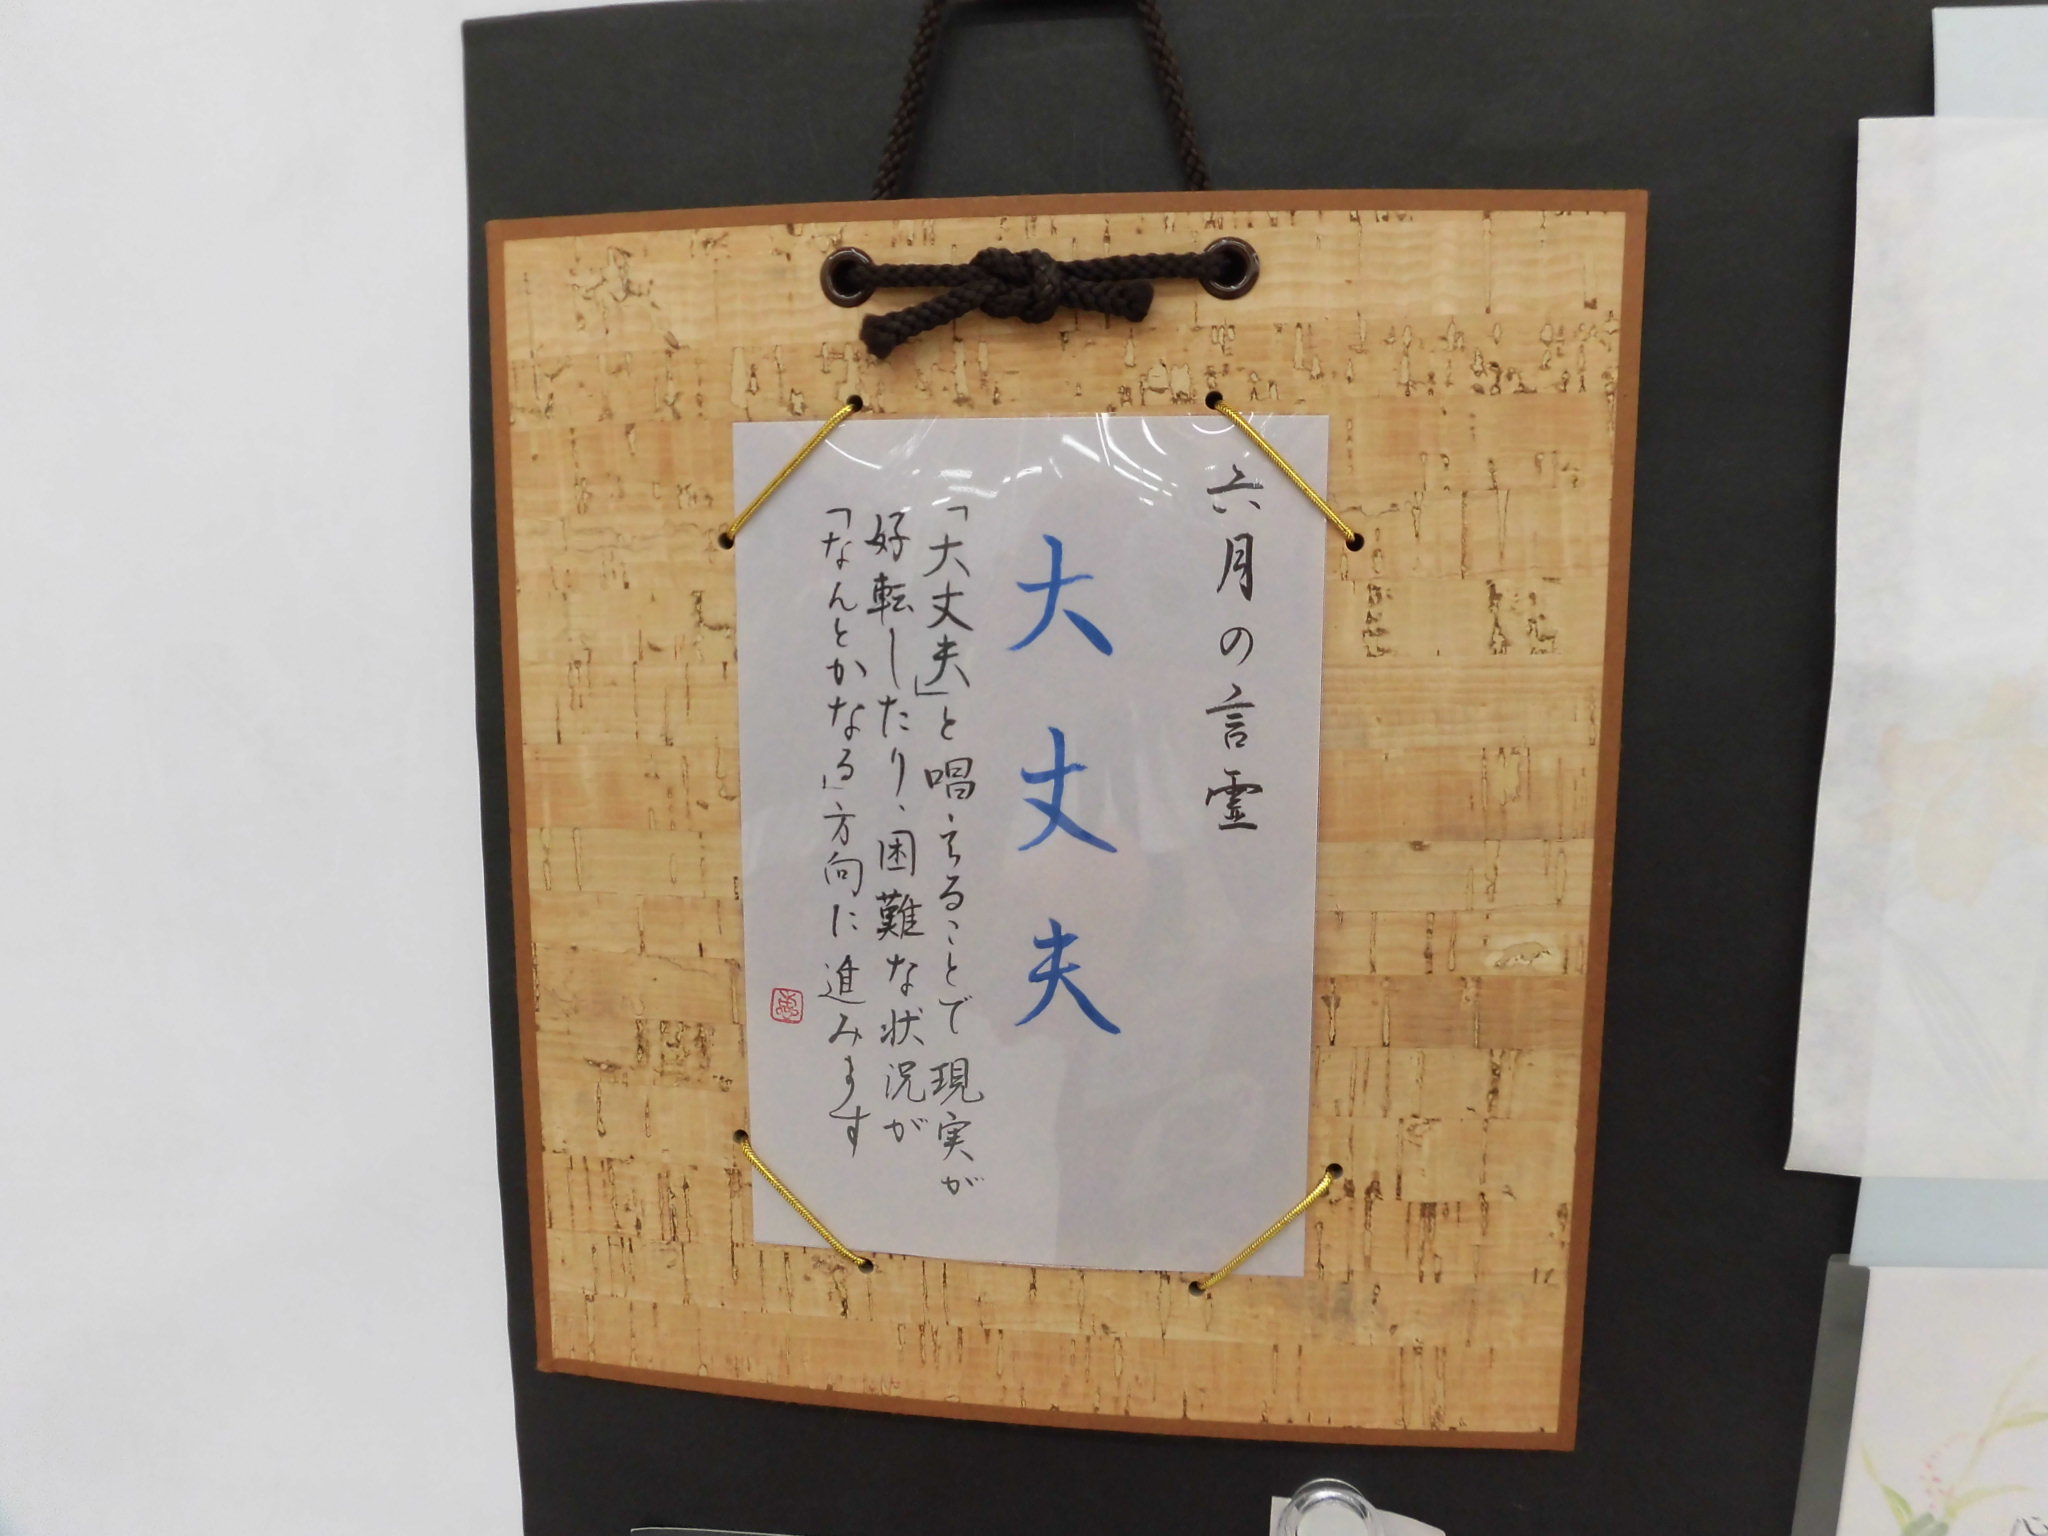 六月の言霊
大丈夫
「大丈夫」と唱えることで現実が
好転したり、困難な状況が
「なんとかなる」方向に進みます